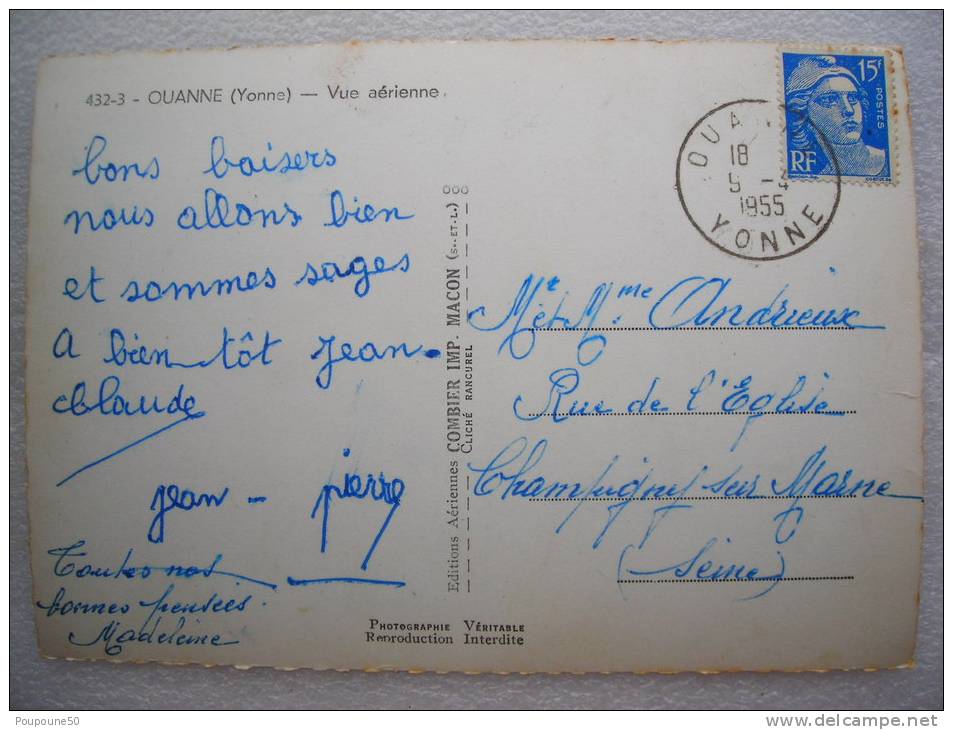 432-3 - OUANNE (Yonne) — Vue aérienne.
bons baisers
nous allons bien
et sommes sages
A bien tôt jean-
claude
jean - pierre
Toutes nos
bonnes pensées.
Madeleine
Editions Aériennes COMBIER IMP. MACON (S.-ET-L.)
CLICHÉ RANCUREL
PHOTOGRAPHIE VÉRITABLE
Reproduction Interdite
15F
POSTES
RF
OUANNE
18
5 - 4
1955
YONNE
Mr et Mme Andrieux
Rue de l'Eglise
Champigny sur Marne
(Seine)
Poupoune50
www.delcampe.net